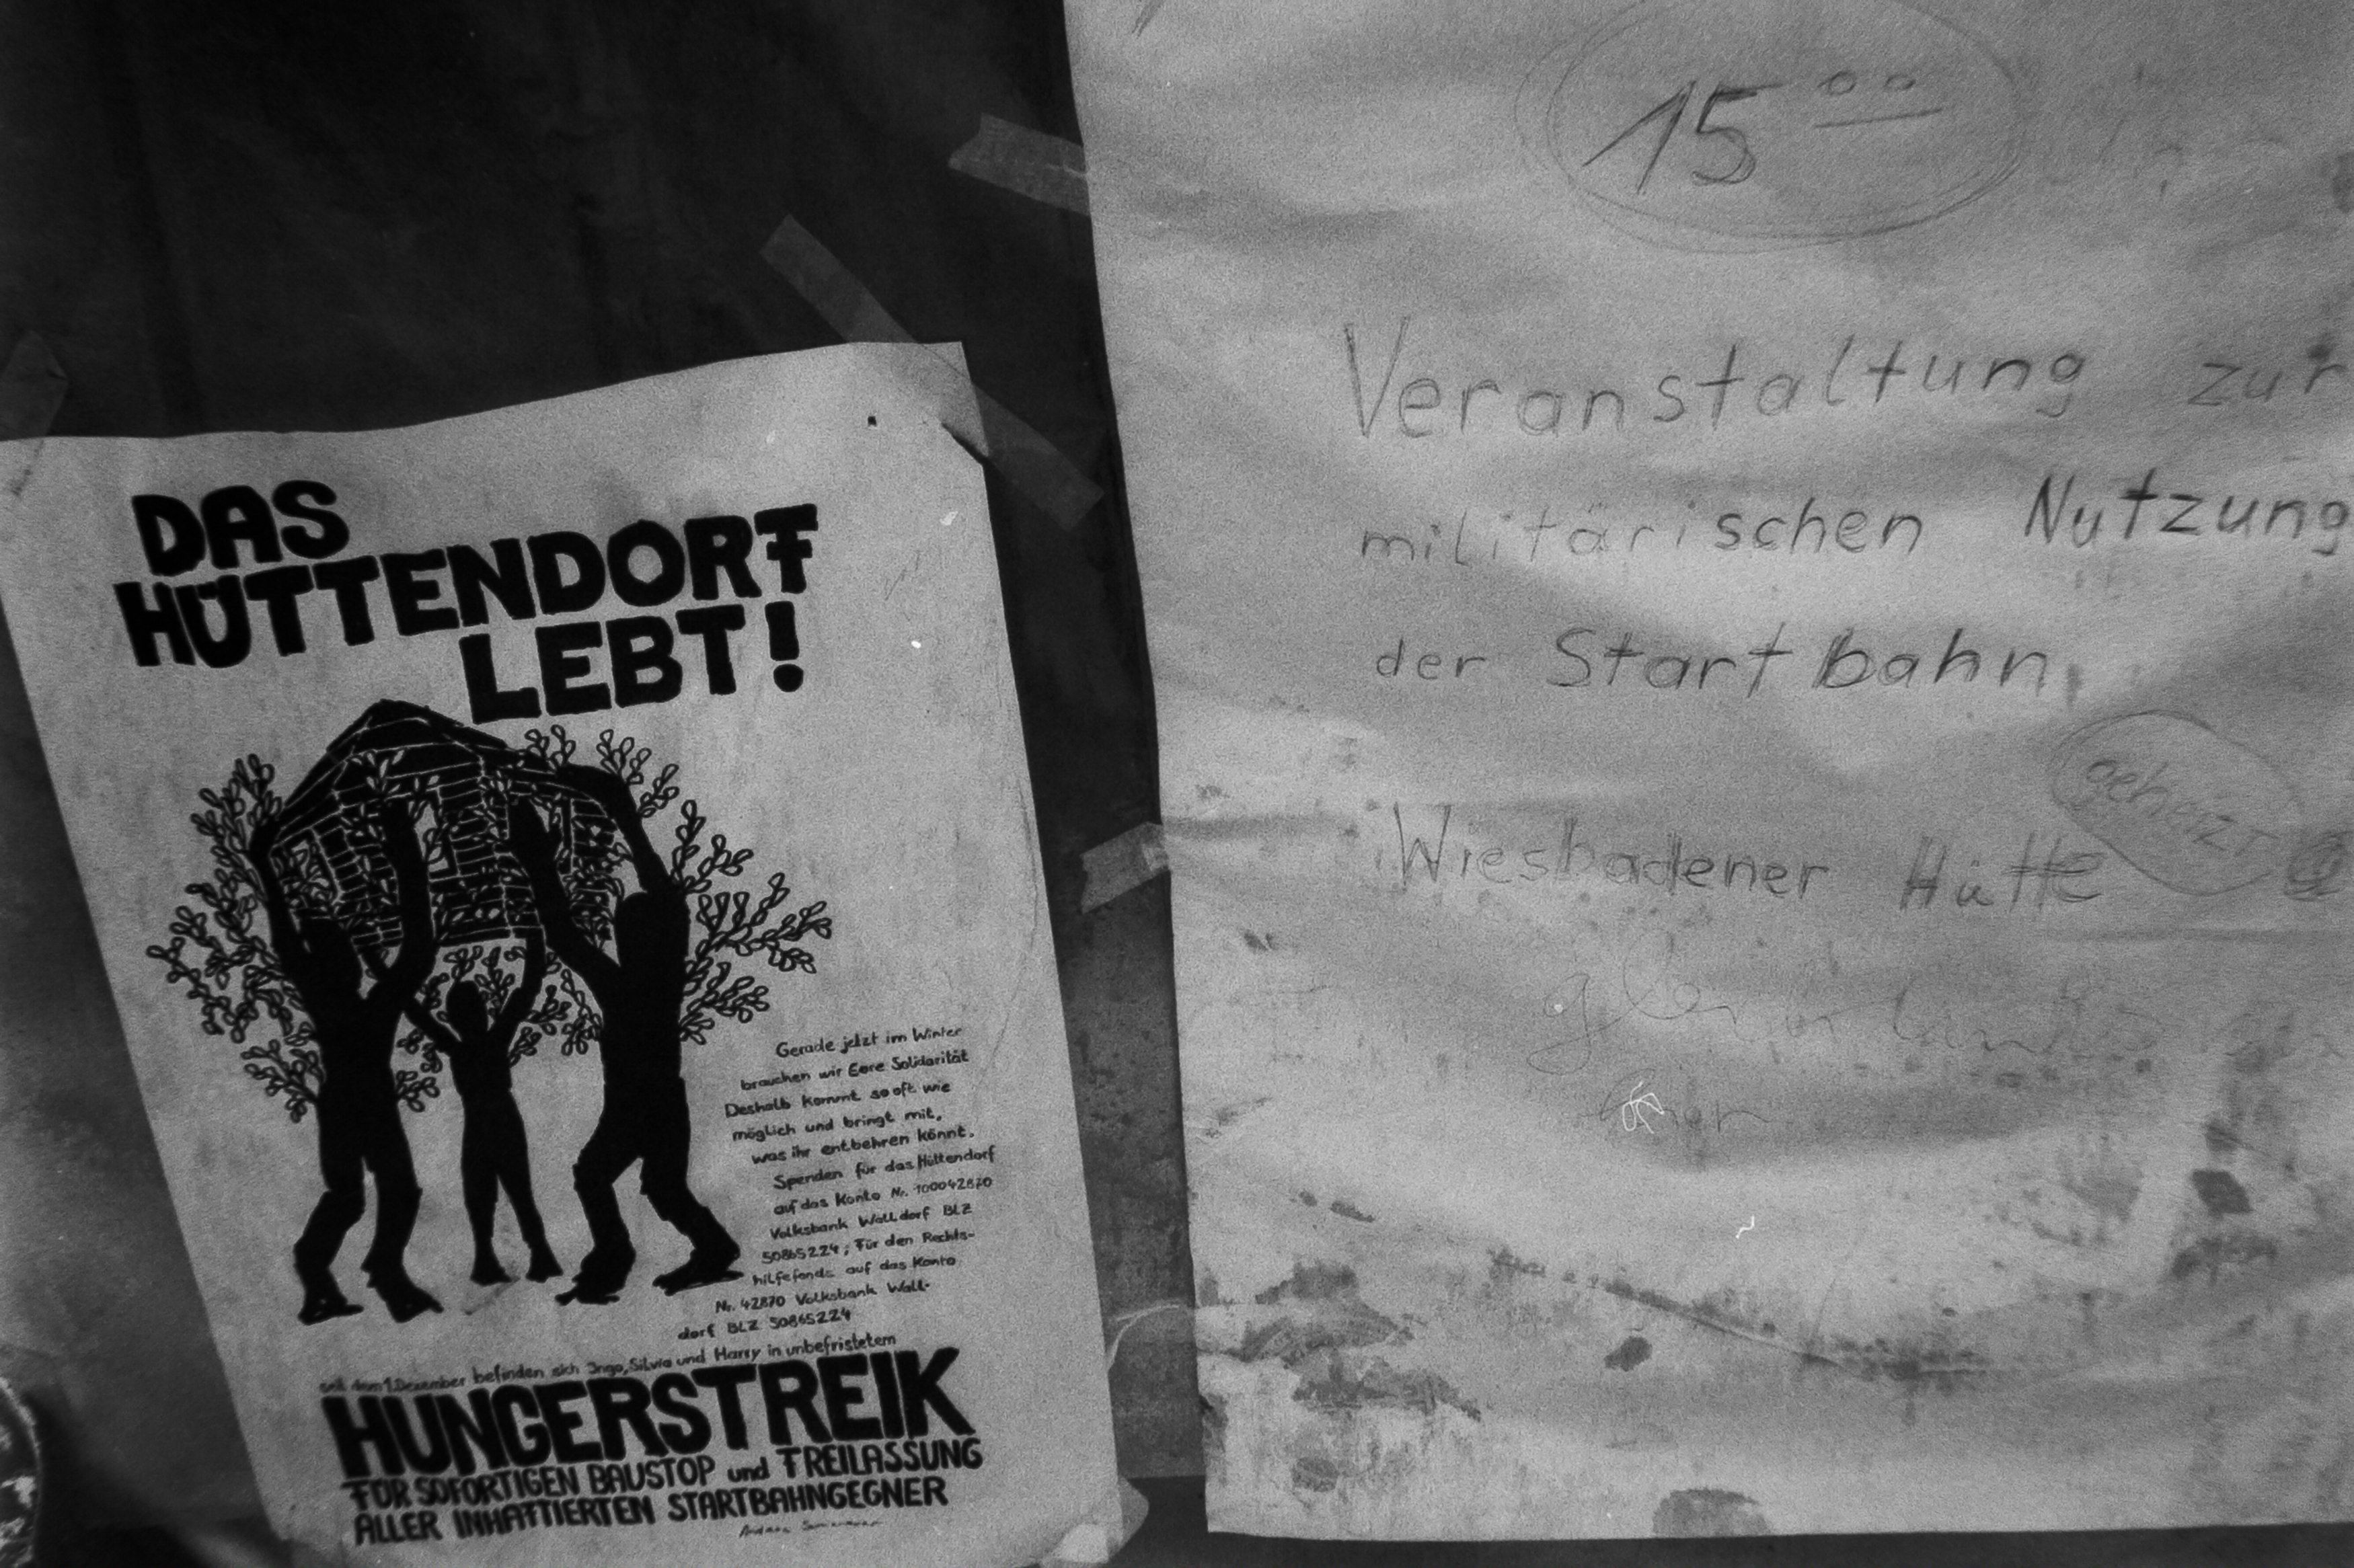 DAS
HÜTTENDORF
LEBT!
Gerade jetzt im Winter
brauchen wir Eure Solidarität
Deshalb kommt so oft wie
möglich und bringt mit,
was ihr entbehren könnt.
Spenden für das Hüttendorf
auf das Konto Nr. 100042870
Volksbank Walldorf BLZ
50865224; Für den Rechts-
hilfefonds auf das Konto
Nr. 42870 Volksbank Wall-
dorf BLZ 50865224
seit dem 1. Dezember befinden sich Ingo, Silvia und Harry in unbefristetem
HUNGERSTREIK
FÜR SOFORTIGEN BAUSTOP und FREILASSUNG
ALLER INHAFTIERTEN STARTBAHNGEGNER
15 00
Veranstaltung zur
militärischen Nutzung
der Startbahn,
geheizt
Wiesbadener Hütte